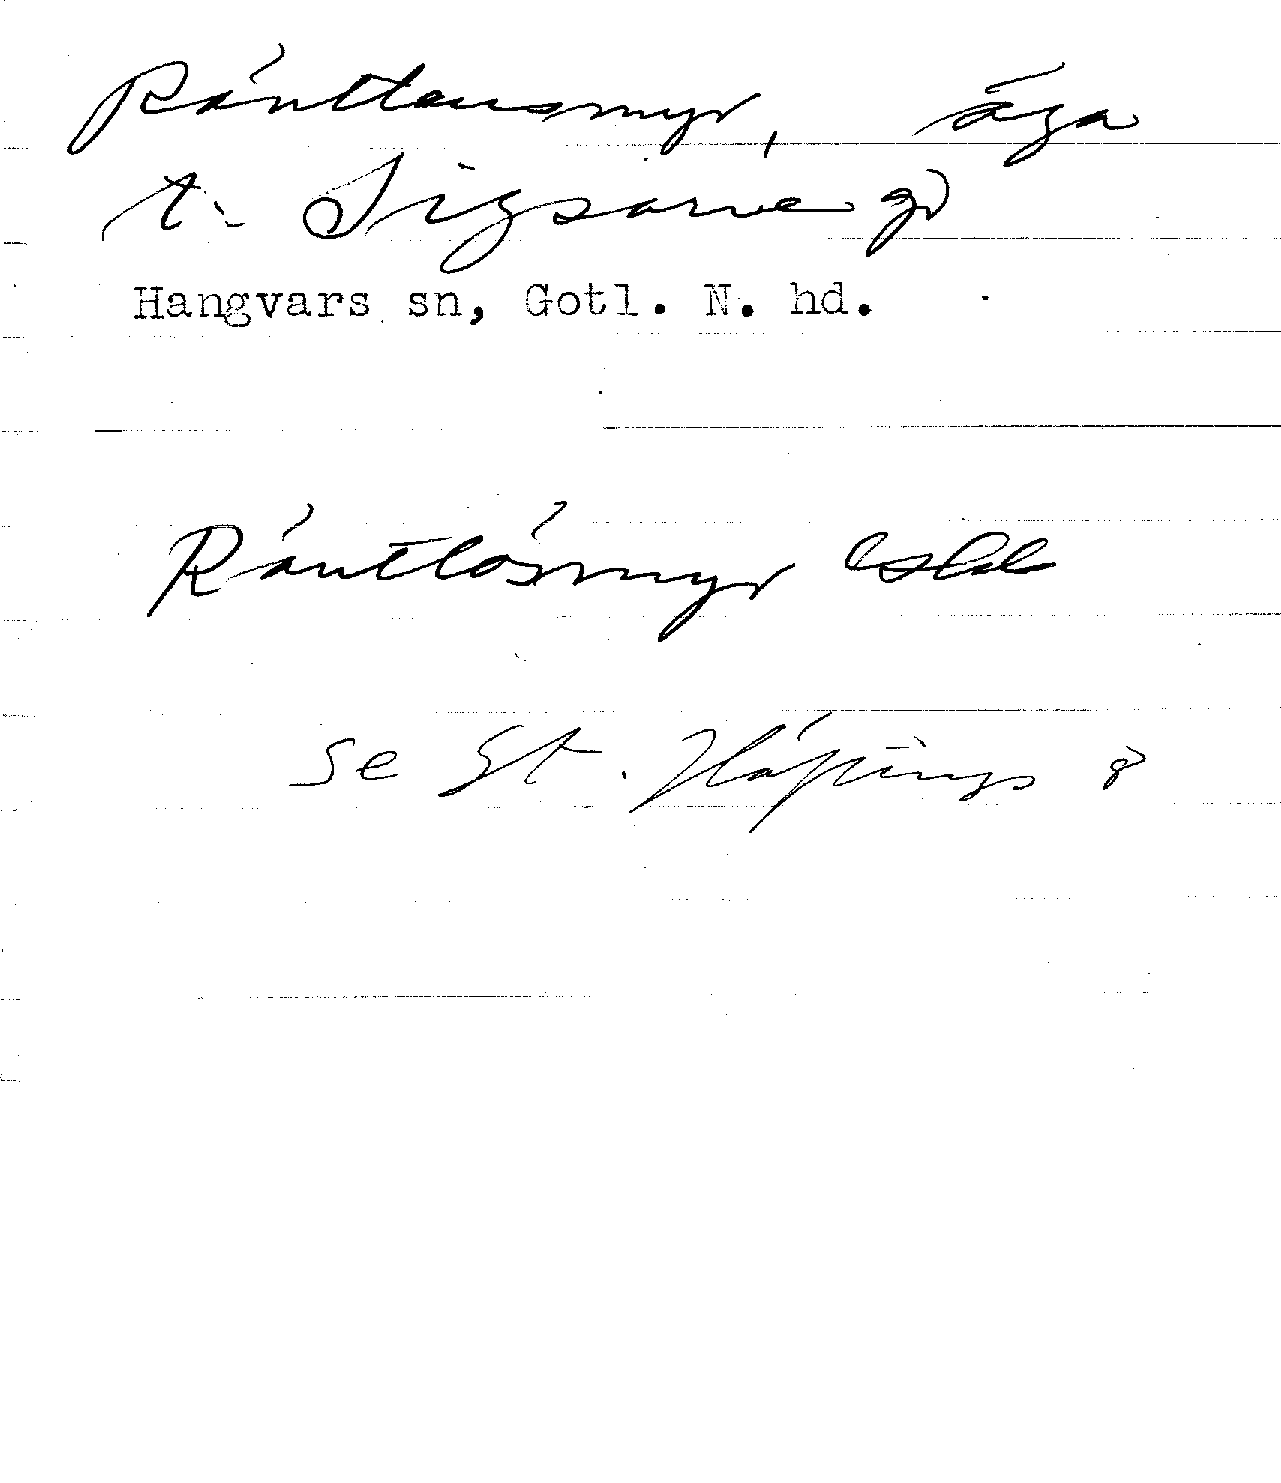 Ránttausmyr, äga
t. Sigsarve gd
Hangvars sn, Gotl. N. hd.
Rántlósmyr
se St. Häftings 8